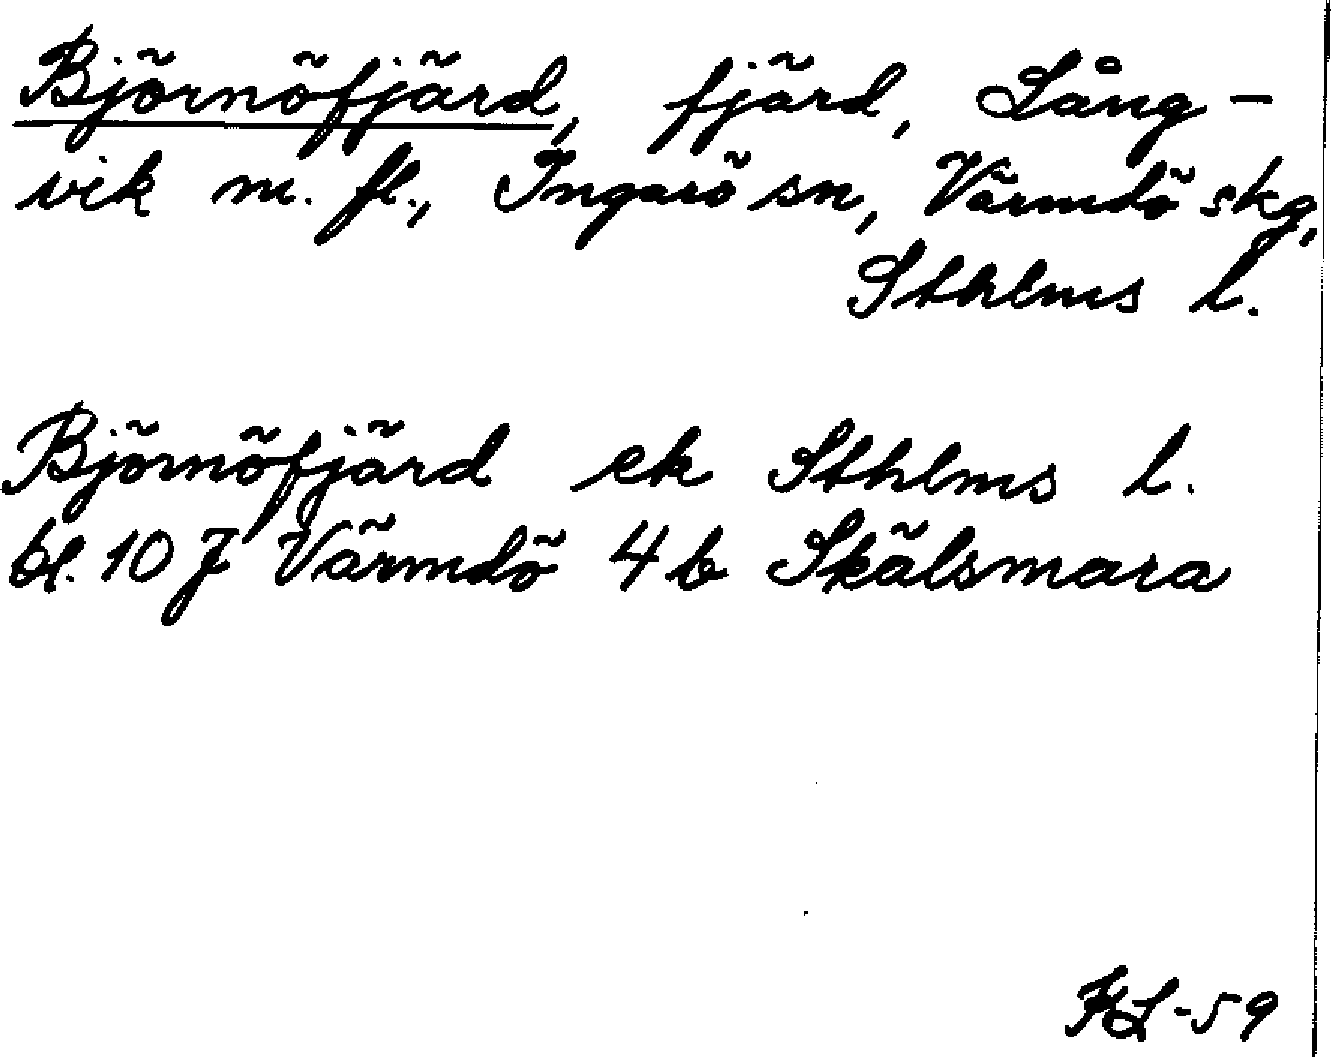 Björnöfjärd, fjärd, Lång-
vik m. fl., Ingarö sn, Värmdö skg,
Sthlms l.
Björnöfjärd ek Sthlms l.
bl. 10 J Värmdö 4 b Skälsmara
HL-59